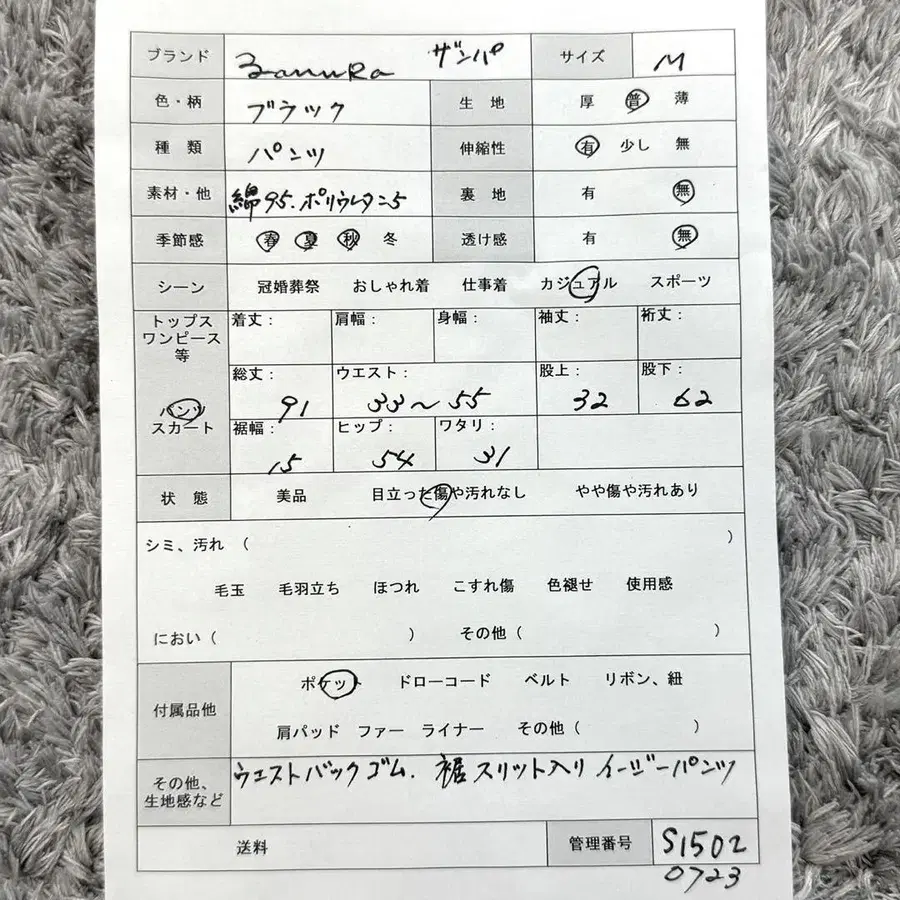 ブランド ザンパ サイズ M
色・柄 ブラック 生地 厚 普 薄
種類 パンツ 伸縮性 有 少し 無
素材・他 綿95.ポリウレタン5 裏地 有 無
季節感 春 夏 秋 冬 透け感 有 無
シーン 冠婚葬祭 おしゃれ着 仕事着 カジュアル スポーツ
トップス 着丈: 肩幅: 身幅: 袖丈: 裄丈:
ワンピース
等
総丈: ウエスト: 股上: 股下:
91 33~55 32 62
パンツ
スカート 裾幅: ヒップ: ワタリ:
15 54 31
状態 美品 目立った傷や汚れなし やや傷や汚れあり
シミ、汚れ ( )
毛玉 毛羽立ち ほつれ こすれ傷 色褪せ 使用感
におい ( ) その他 ( )
ポケット ドローコード ベルト リボン、紐
付属品他
肩パッド ファー ライナー その他 ( )
その他、
生地感など ウエストバックゴム. 裾スリット入り イージーパンツ
送料 管理番号 S1502
0723